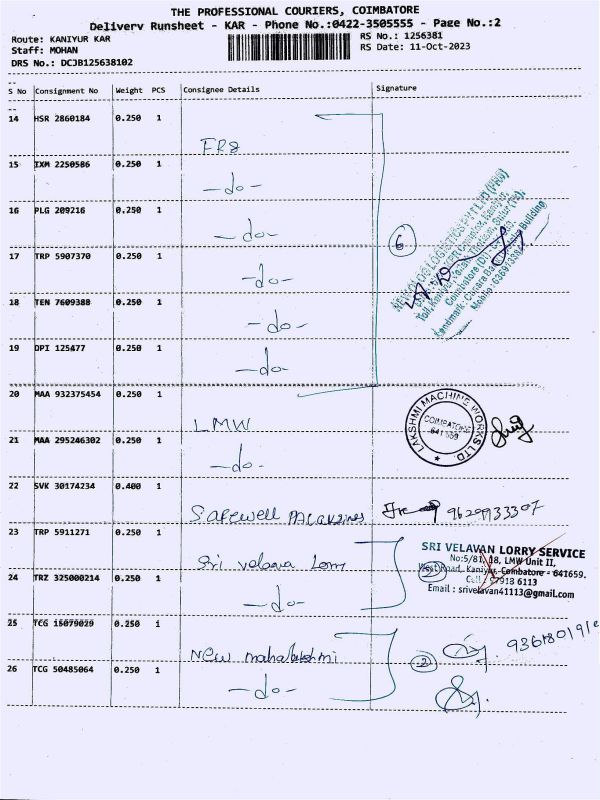 THE PROFESSIONAL COURIERS, COIMBATORE
Delivery Runsheet - KAR - Phone No.:0422-3505555 - Page No.:2
Route: KANIYUR KAR
RS No.: 1256381
Staff: MOHAN
RS Date: 11-Oct-2023
DRS No.: DCJB125638102
S No Consignment No Weight PCS Consignee Details Signature
14 HSR 2860184 0.250 1
FRS
15 IXM 2250586 0.250 1
-do-
16 PLG 209216 0.250 1
-do-
6
17 TRP 5907370 0.250 1
-do-
18 TEN 7609388 0.250 1
-do-
19 OPI 125477 0.250 1
-do-
20 MAA 932375454 0.250 1
LMW
LAKSHMI MACHINE WORKS LTD
COIMBATORE
21 MAA 295246302 0.250 1
-do-
22 SVK 30174234 0.400 1
Safewell
23 TRP 5911271 0.250 1
Sri velava Lorry
SRI VELAVAN LORRY SERVICE
No:5/81, 18, LMW Unit II,
West Road, Kaniyur, Coimbatore - 641659.
Cell : 97918 6113
Email : srivelavan41113@gmail.com
24 TRZ 325000214 0.250 1
-do-
2
25 TCG 15079029 0.250 1
New mahalakshmi
2
26 TCG 50485064 0.250 1
-do-